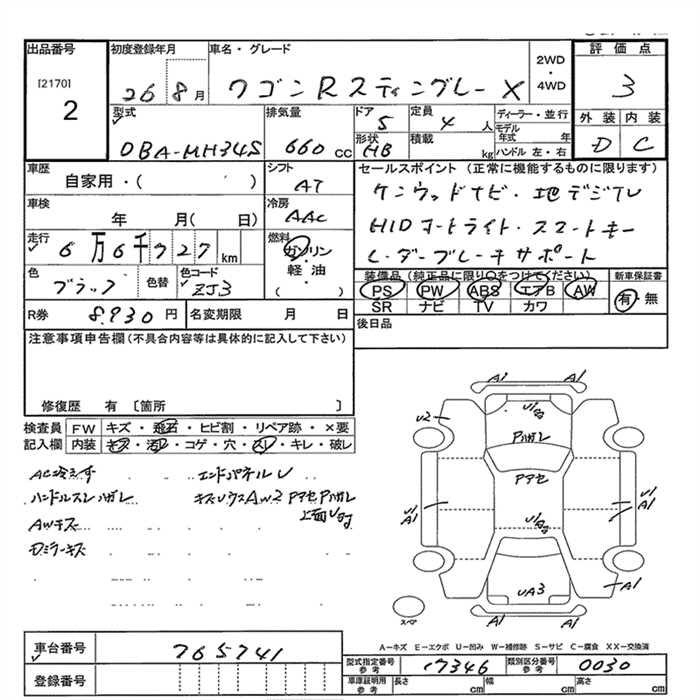 出品番号 初度登録年月 車名・グレード 2WD・4WD 評価点
[2170] 2 26 8月 ワゴンRスティングレー X 3
型式 排気量 ドア 定員 ディーラー・並行 外装 内装
DBA-MH34S 660 cc 5 4人 モデル年式 年 D C
形状 HB 積載 kg ハンドル 左・右
車歴 シフト セールスポイント (正常に機能するものに限ります)
自家用・( ) AT ケンウッドナビ・地デジTV
車検 冷房 HIDオートライト・スマートキー
年 月( 日) AAC レーダーブレーキサポート
走行 6万6千727km 燃料 ガソリン・軽油・( )
色 ブラック 色替 色コード ZJ3
装備品 (純正品に限り○をつけてください) 新車保証書
PS PW ABS エアB AW 有・無
SR ナビ TV カワ
R券 8,930円 名変期限 月 日 後日品
注意事項申告欄 (不具合内容等は具体的に記入して下さい)
修復歴 有 [箇所 ]
検査員 FW キズ・飛石・ヒビ割・リペア跡・×要
記入欄 内装 キズ・汚レ・コゲ・穴・スレ・キレ・破レ
AC冷えず エンドパネルU
ハンドルスレハガレ キズU
AWキズ
Dミラーキズ
A1 A1
U2
Pハガレ
Pアセ
U1 A1 U1 A1
A1
UA3
A1 A1
スペア
A-キズ E-エクボ U-凹み W-補修跡 S-サビ C-腐食 XX-交換済
車台番号 765741 型式指定番号 参考 17346 類別区分番号 参考 0030
登録番号 車庫証明用 参考 長さ cm 幅 cm 高さ cm